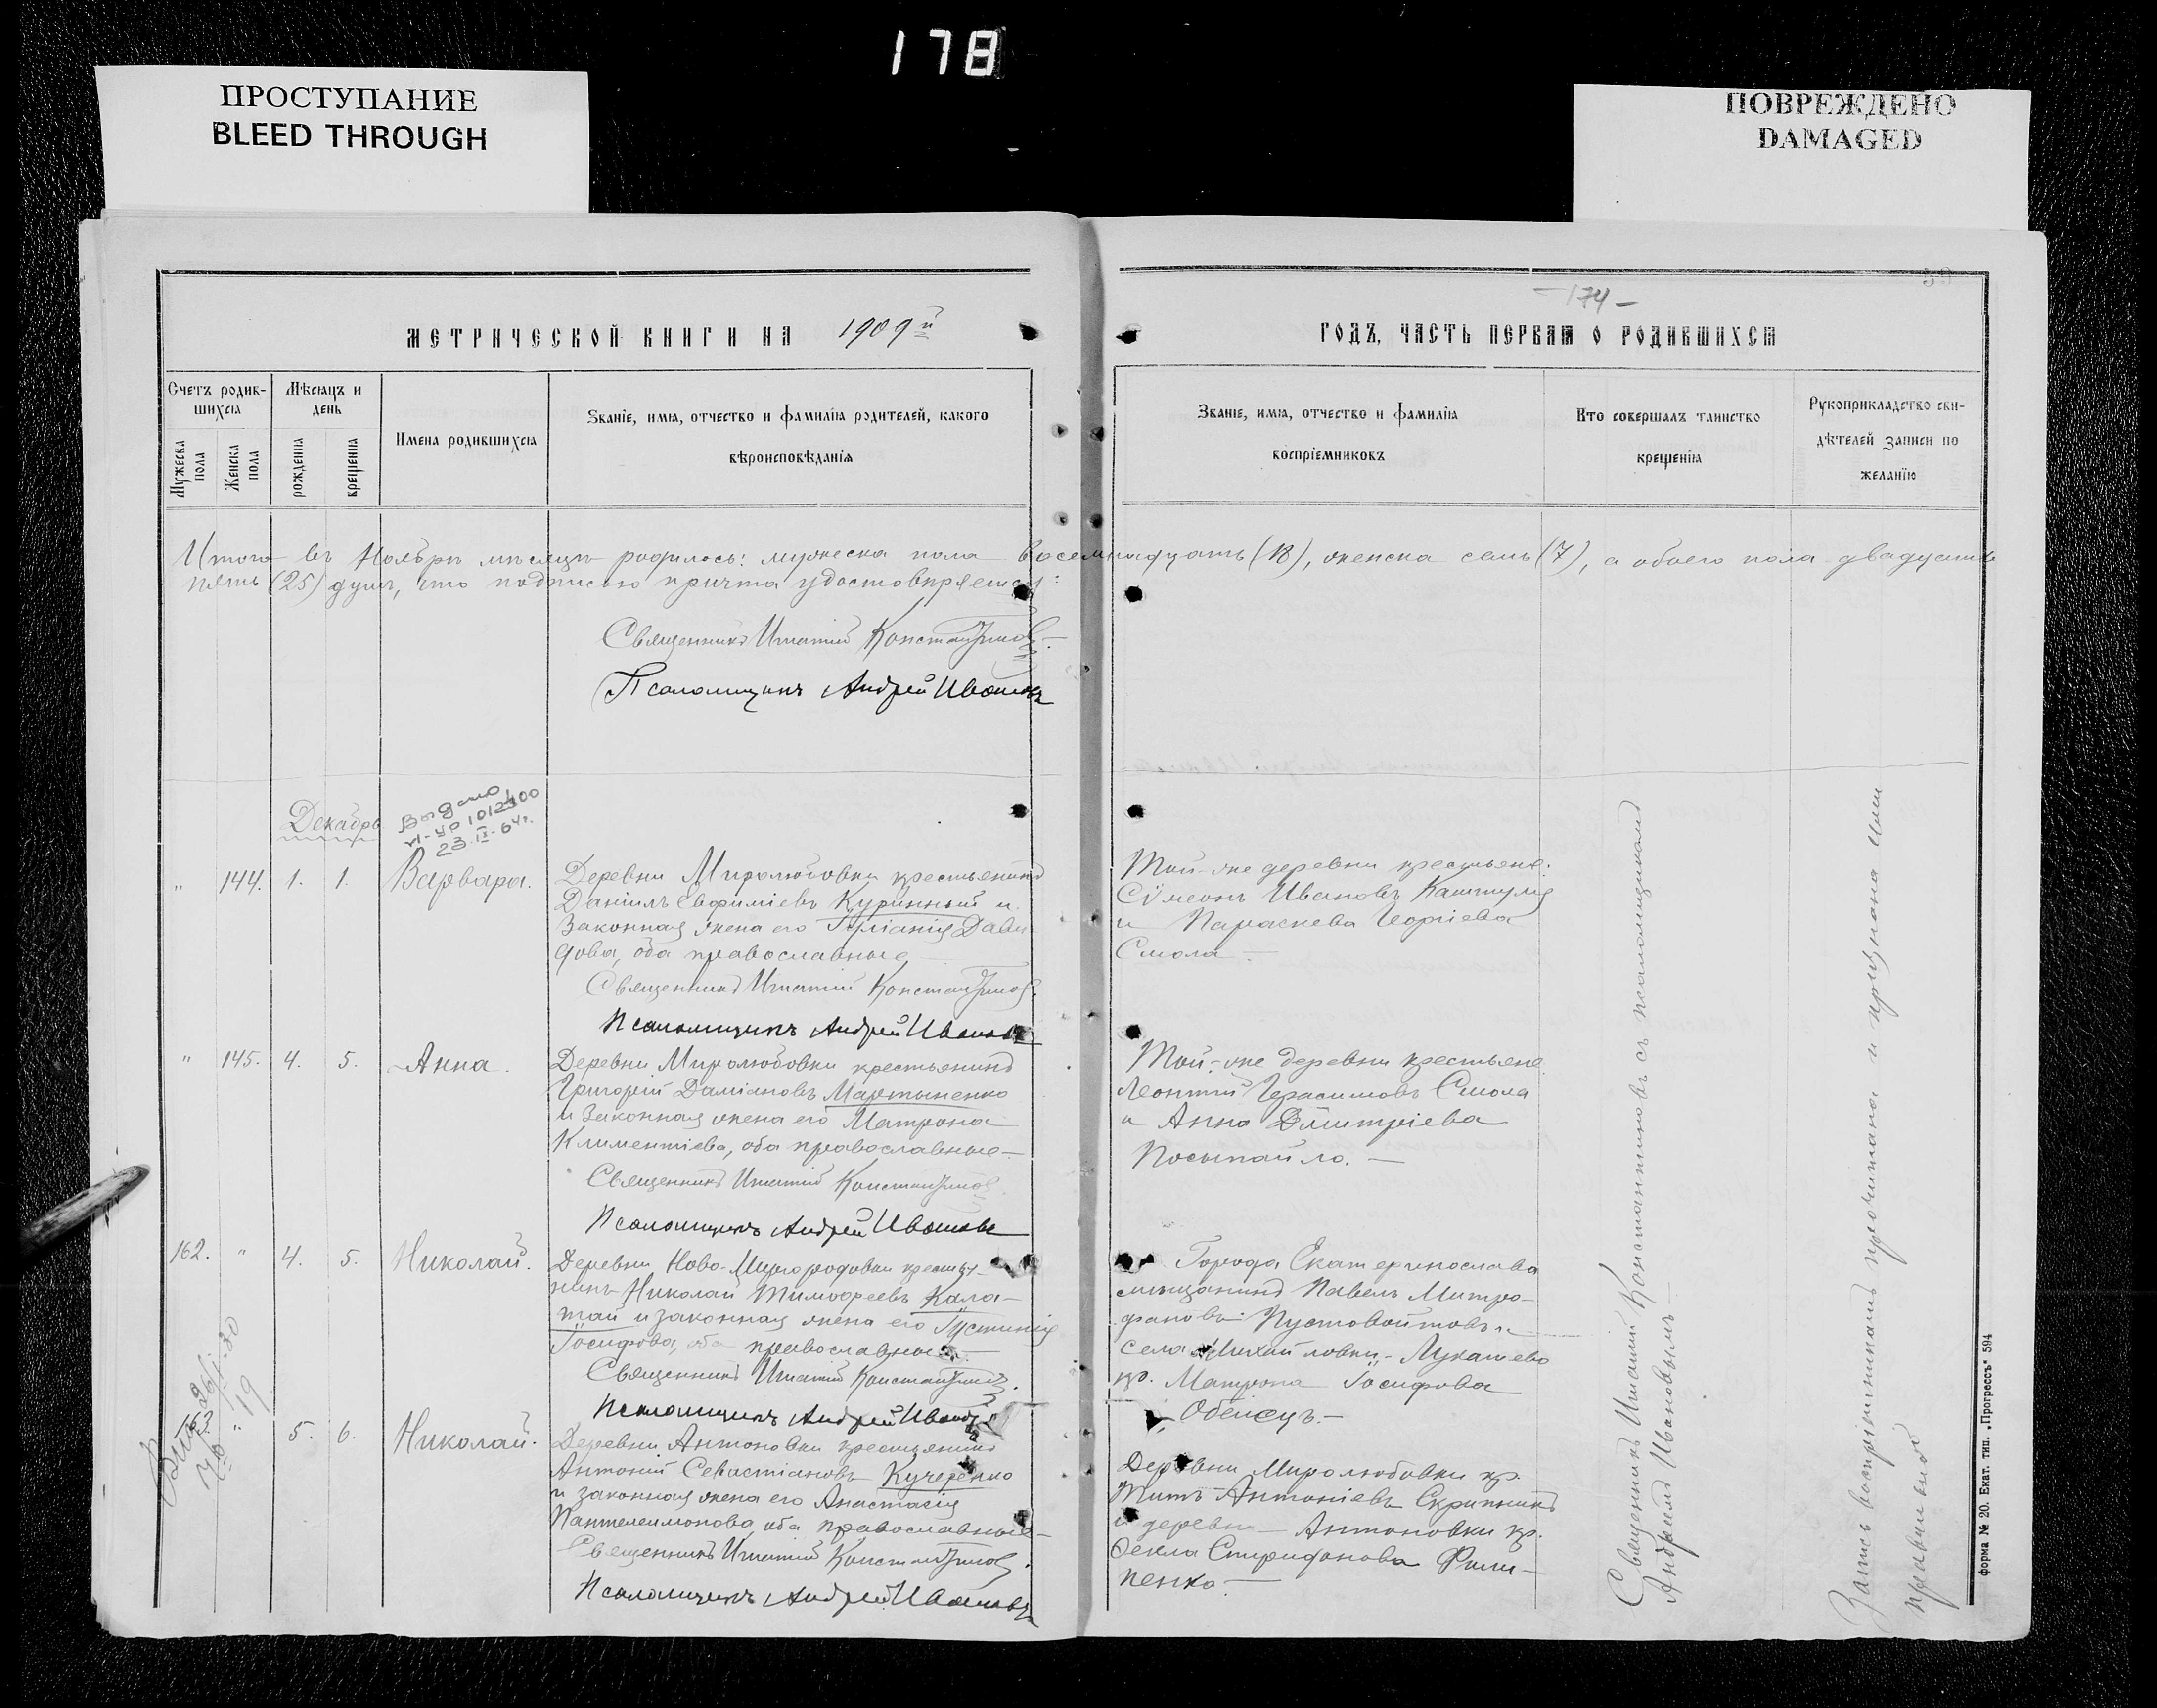 178
ПРОСТУПАНИЕ
BLEED THROUGH
ПОВРЕЖДЕНО
DAMAGED
МЕТРИЧЕСКОЙ КНИГИ НА 1909й
Счетъ родив-
шихся
Мужеска пола
Женска пола
Мѣсяцъ и
день
рожденія
крещенія
Имена родившихся
Званіе, имя, отчество и фамилія родителей, какого
вѣроисповѣданія
-174-
ГОДЪ, ЧАСТЬ ПЕРВАЯ О РОДИВШИХСЯ
Званіе, имя, отчество и фамилія
воспріемниковъ
Кто совершалъ таинство
крещенія
Рукоприкладство сви-
дѣтелей записи по
желанію
Итого въ Ноябрѣ мѣсяцѣ родилось: мужеска пола восемнадцать (18), женска семь (7), а обоего пола двадцать
пять (25) душъ, что подписью причта удостовѣряется:
Священникъ Игнатій Константиновъ
Псаломщикъ Андрей Ивановъ
Декабрь
23.IX.64г.
" 144. 1. 1. Варвара.
Деревни Миролюбовки крестьянинъ
Даніилъ Евфиміевъ Куринный и
законная жена его Іуліанія Дави-
дова, оба православные
Священникъ Игнатій Константиновъ.
Псаломщикъ Андрей Ивановъ
Той-же деревни крестьяне:
Сѵмеонъ Ивановъ
и Параскева Георгіева
Смола.—
" 145. 4. 5. Анна.
Деревни Миролюбовки крестьянинъ
Григорій Даміановъ Мартыненко
и законная жена его Матрона
Климентіева, оба православные—
Священникъ Игнатій Константиновъ
Псаломщикъ Андрей Ивановъ
Той-же деревни крестьяне
Леонтій Герасимовъ Смола
и Анна Димитріева
Посыпайло.—
162. " 4. 5. Николай.
Деревни Ново-Миргородовки крестья-
нинъ Николай Тимофеевъ Кала-
тай и законная жена его Іустинія
Іосифова, оба православные.—
Священникъ Игнатій Константиновъ.
Псаломщикъ Андрей Ивановъ
Города Екатеринослава
мѣщанинъ Павелъ Митро-
фановъ Пустовойтовъ и
села Михайловки-Лукашево
кр. Матрона Іосифова
163 " 5. 6. Николай.
Деревни Антоновки крестьянинъ
Антоній Севастіановъ Кучеренко
и законная жена его Анастасія
Пантелеимонова, оба православные—
Священникъ Игнатій Константиновъ.
Псаломщикъ Андрей Ивановъ
Деревни Миролюбовки кр.
Титъ Антоніевъ Скрипникъ
и деревни Антоновки кр.
Фекла Спиридонова Фили-
пенко.—
Священникъ Игнатій Константиновъ съ псаломщикомъ
Андреемъ Ивановымъ.—
Запись воспріемникамъ прочитана и признана ими
правильной
Форма № 20. Екат. тип. „Прогрессъ" 594